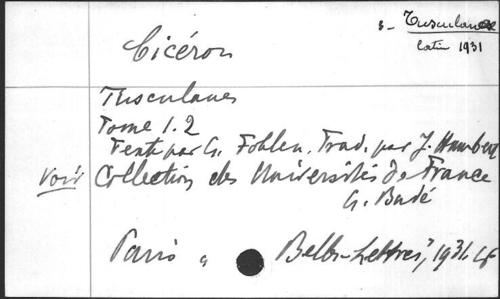 s_ Tusculanes
latin 1931
Cicéron
Tusculanes
Tome 1.2
Texte par G. Fohlen. Trad. par J. Humbert
Voir Collection des Universités de France
G. Budé
Paris " Belles-Lettres, 1931